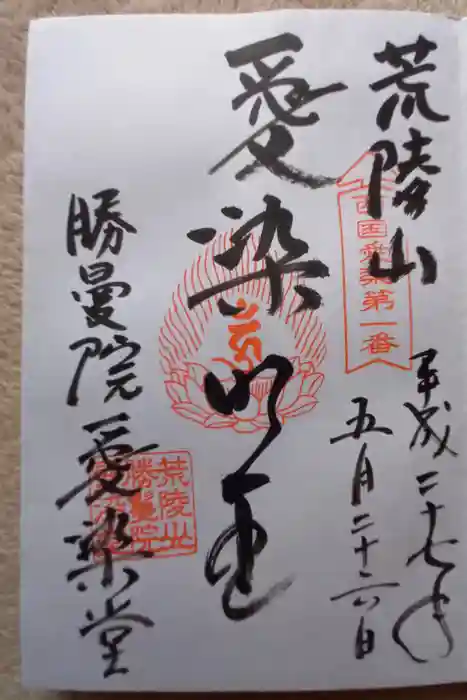 荒陵山
西国愛染第一番
平成二十七年
五月二十六日
愛染明王
勝鬘院愛染堂
荒陵山
勝鬘院